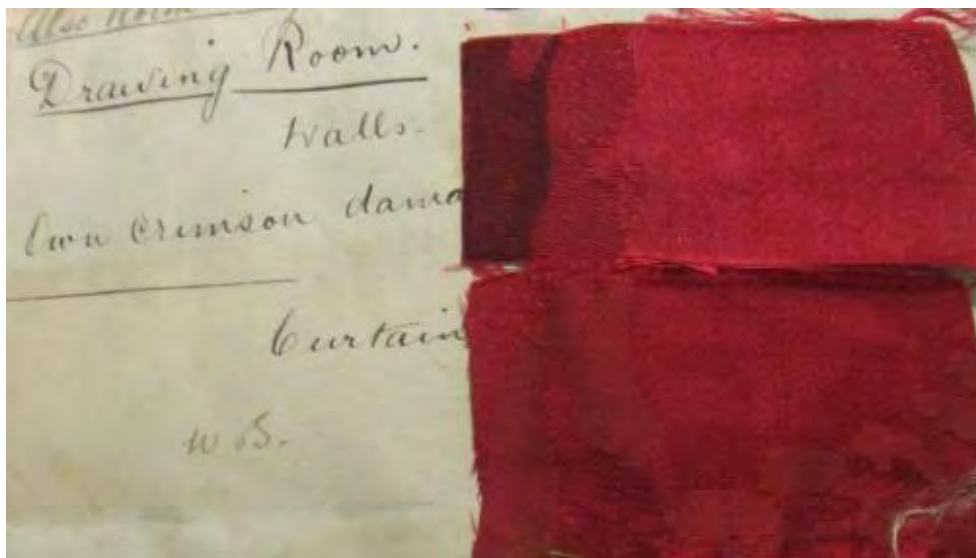 Also
Drawing Room.
Walls.
Own Crimson dama
Curtain
W B.